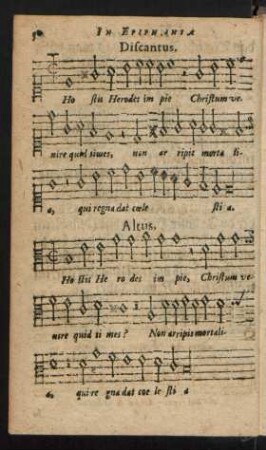 50 IN EPIPHANIA
Discantus.
Ho stis Herodes im pie Christum ve.
nire quid times, non ar ripit morta li-
a, qui regna dat cœle sti a.
Altus.
Ho stis He ro des im pie, Christum ve-
nire quid ti mes? Non arripit mortali-
a, qui re gna dat coe le sti a